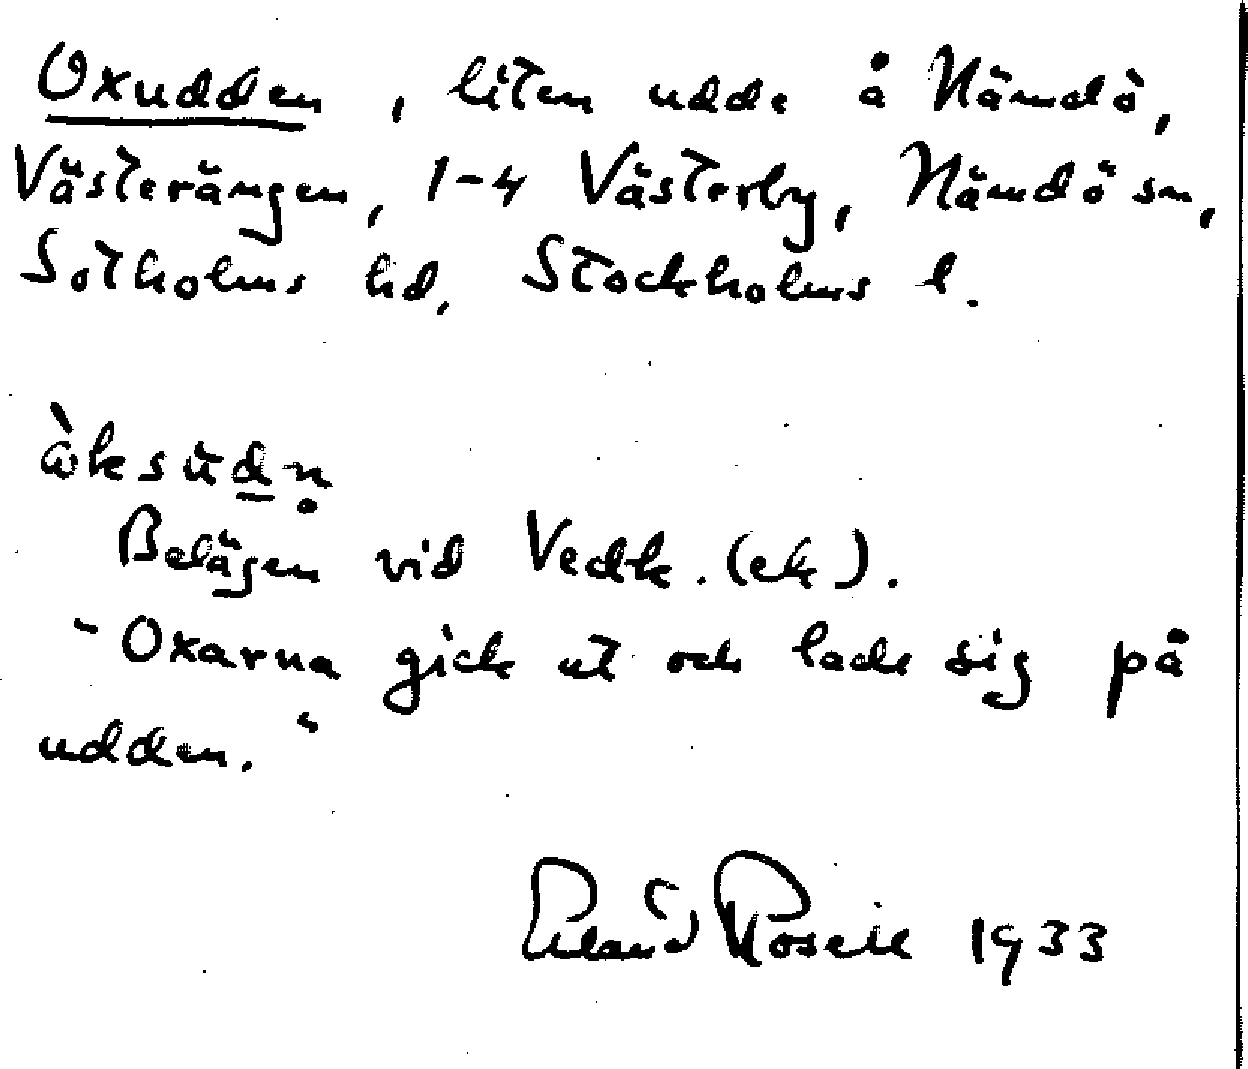 Oxudden, liten udde å Nämdö,
Västerängen, 1-4 Västerby, Nämdö sn,
Sotholms hd, Stockholms l.
ὼksùdn̥
Belägen vid Vedk. (ek).
"Oxarna gick ut och lade sig på
udden."
Erland Rosell 1933